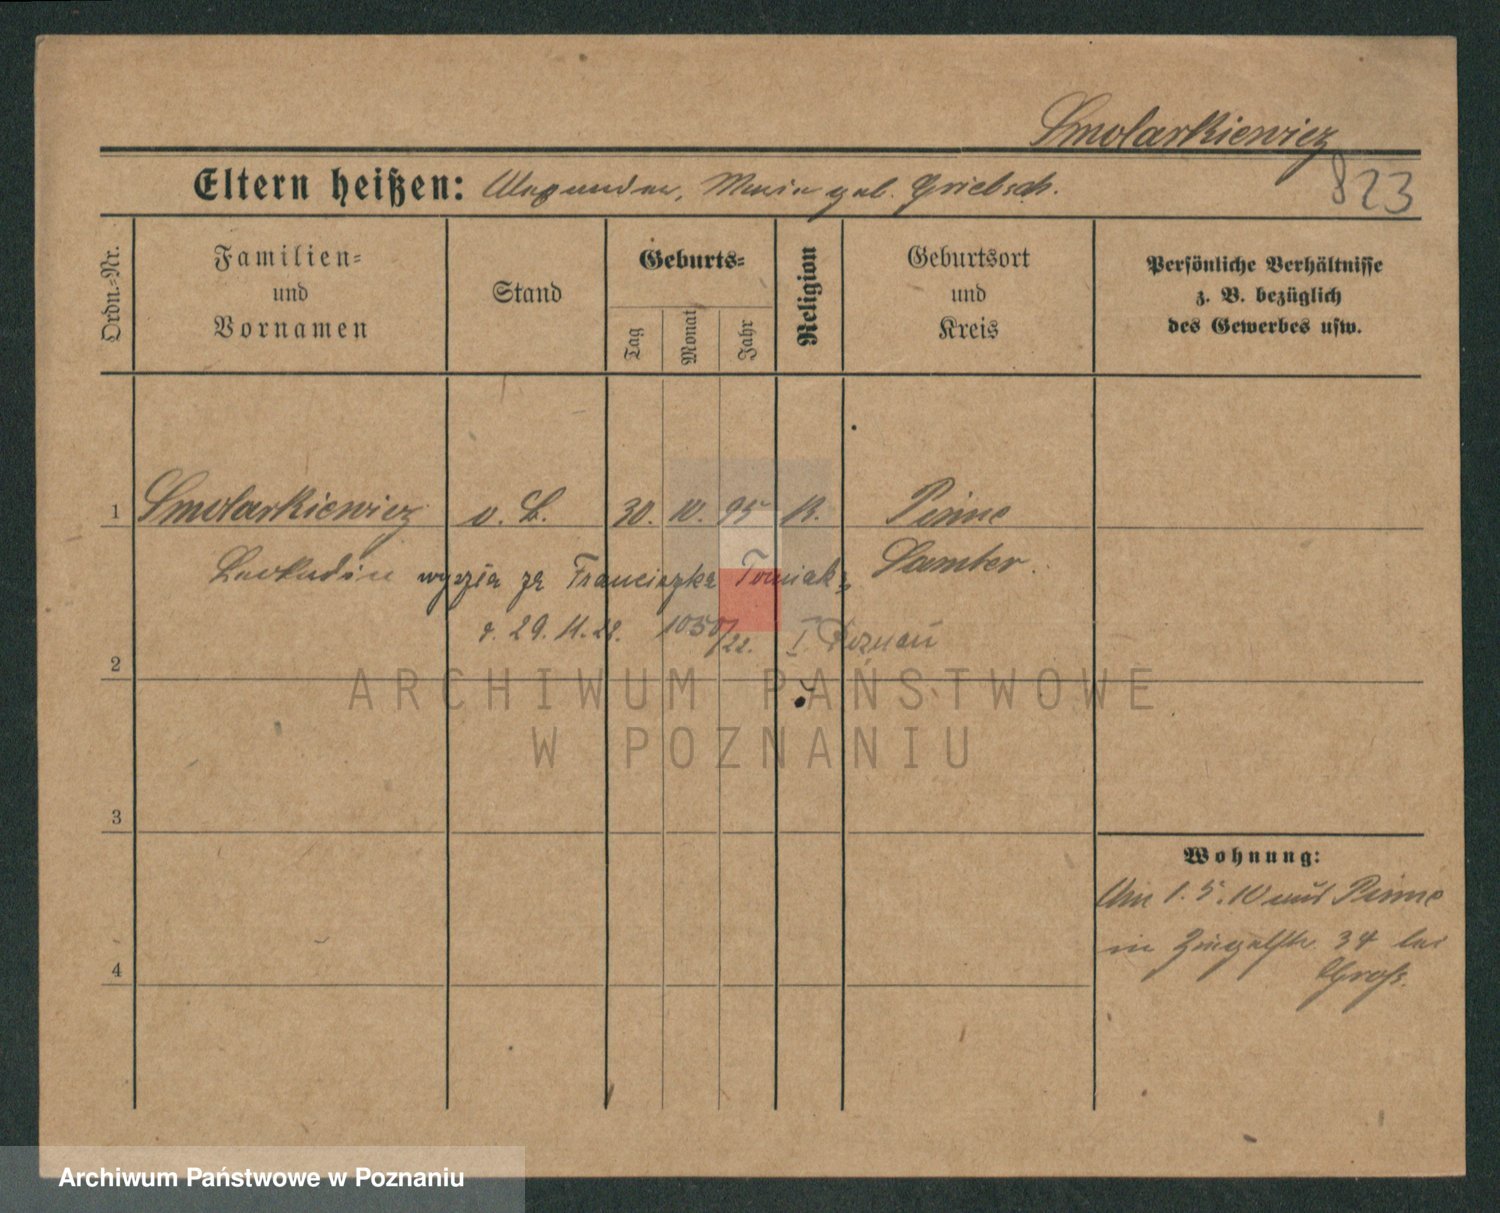 Smolarkiewicz
Eltern heißen: Alexander, Maria geb. Grietsch.
823
Ordn.-Nr.
Familien=
und
Vornamen
Stand
Geburts=
Tag
Monat
Jahr
Religion
Geburtsort
und
Kreis
Persönliche Verhältnisse
z. B. bezüglich
des Gewerbes usw.
1 Smolarkiewicz o. B. 30. 10. 95 K. Pinne
Leokadia wyszła za Franciszka Tomiaka Samter.
d. 29. 11. 22. 1050/22. I. Poznań
2
ARCHIWUM PAŃSTWOWE
W POZNANIU
3
Wohnung:
Am 1. 5. 10 aus Pinne
in 34 bei
4
Groß.
Archiwum Państwowe w Poznaniu